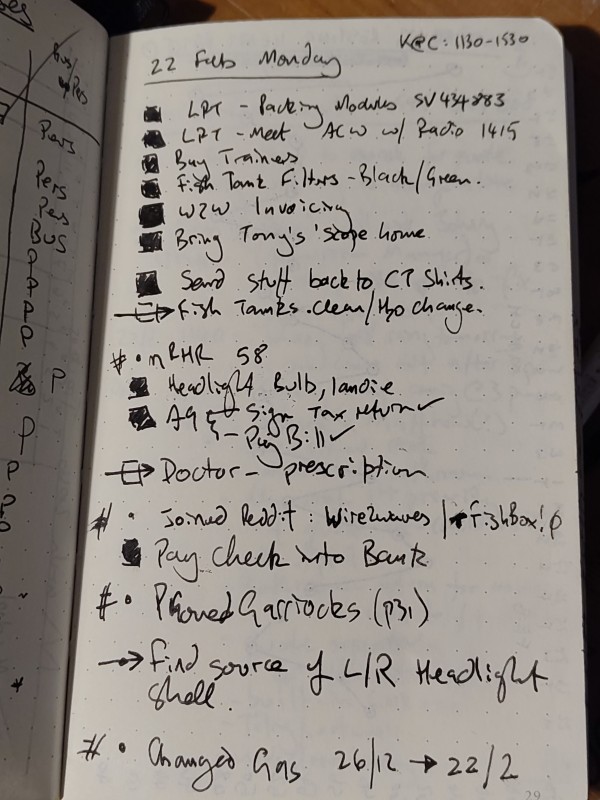 K@C: 1130-1530
22 Feb Monday
LPT - Packing Modules SV434883
LPT - Meet ACW w/ Radio 1415
Buy Trainers
Fish Tank Filters - Black/Green.
W2W Invoicing
Bring Tony's 'scope home
Send stuff back to CT Shirts.
Fish Tanks. clean/H2O change.
# • nRHR 58
Headlight Bulb, landie
A9 - Sign Tax return ✓
- Pay Bill ✓
Doctor - prescription
# • Joined Reddit: Wire2waves | FishBox!p
Pay check into Bank
# • Phoned Garriocks (p31)
→ Find source of L/R Headlight
Shell.
# • Changed Gas 26/12 → 22/2
29
Bus/
Pers
Pers
Pers
Pers
BUS
P